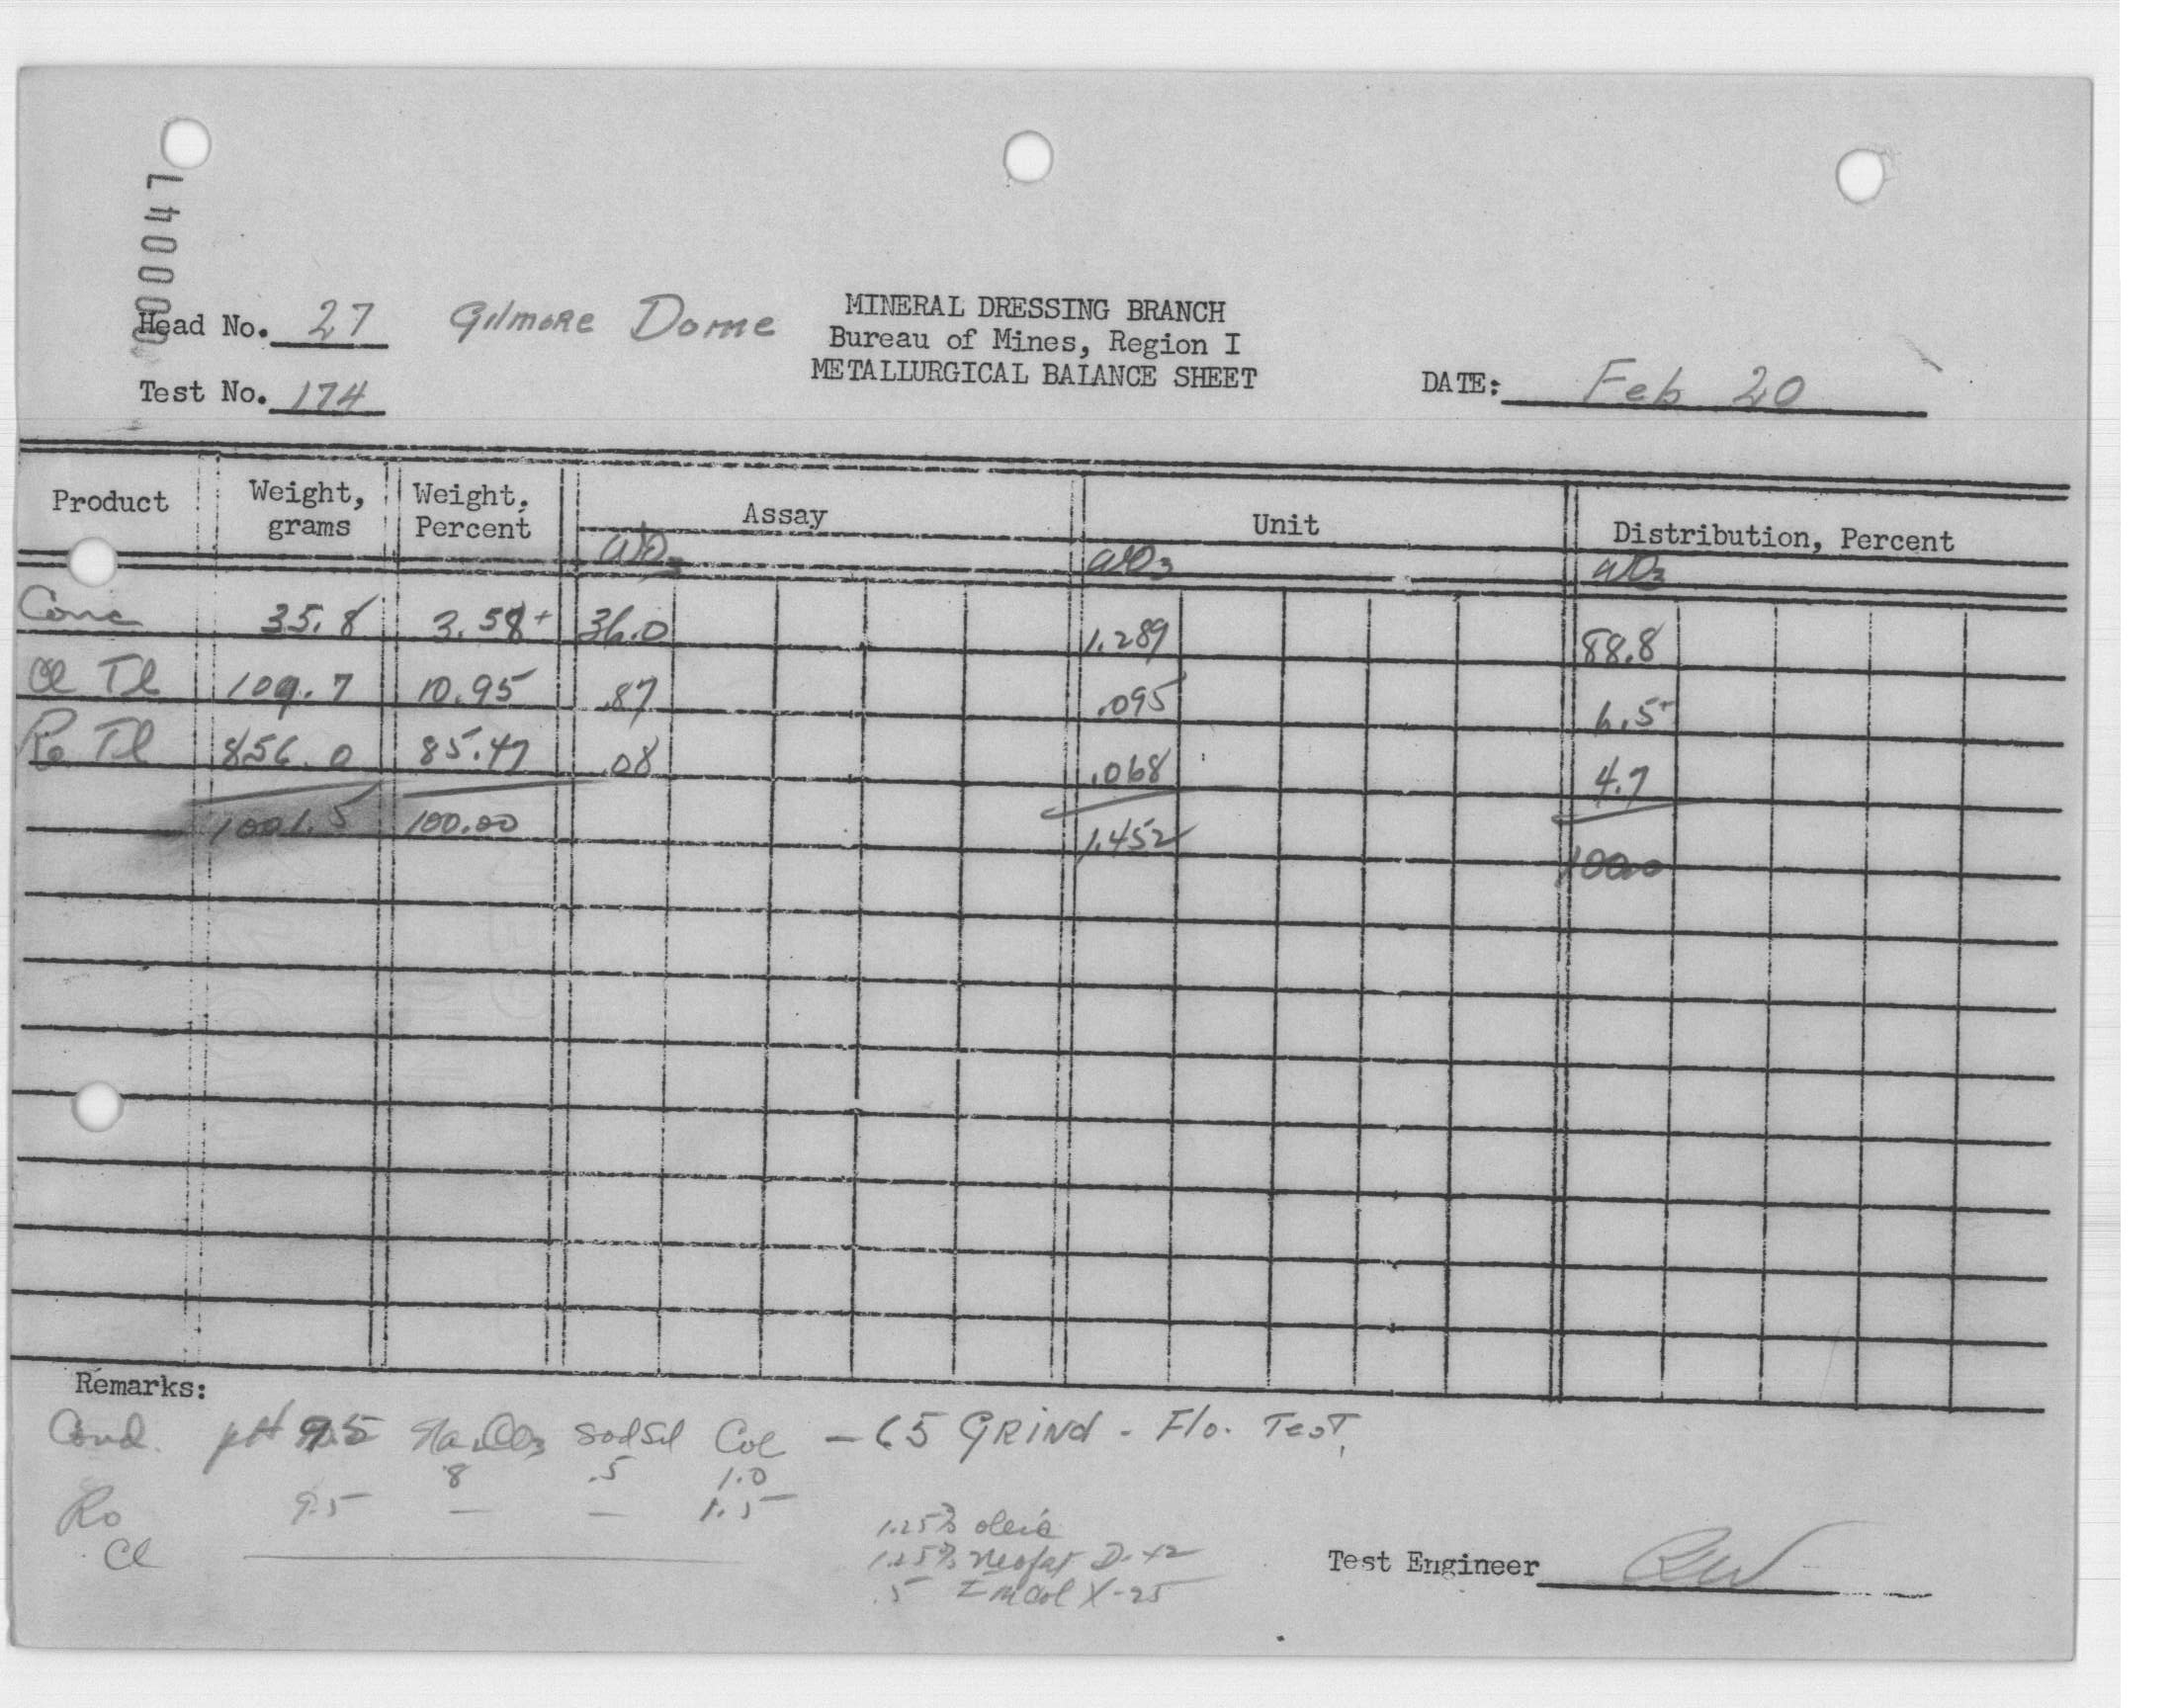 L40000
Head No. 27 Gilmore Dome
Test No. 174
MINERAL DRESSING BRANCH
Bureau of Mines, Region I
METALLURGICAL BALANCE SHEET
DATE: Feb 20
Product Weight, grams Weight, Percent Assay Unit Distribution, Percent
WO3 WO3 WO3
Conc 35.8 3.58+ 36.0 1.289 88.8
Cl Tl 109.7 10.95 .87 .095 6.5+
Ro Tl 856.0 85.47 .08 .068 4.7
1001.5 100.00 1.452 100.0
Remarks:
Cond. pH 9.5 Na2CO3 Sod Sil Col - 65 GRIND - Flo. Test.
8 .5 1.0
Ro 9.5 — — 1.5
Cl
1.25% oleic
1.25% neofat D-42
.5 Emcol X-25
Test Engineer RW